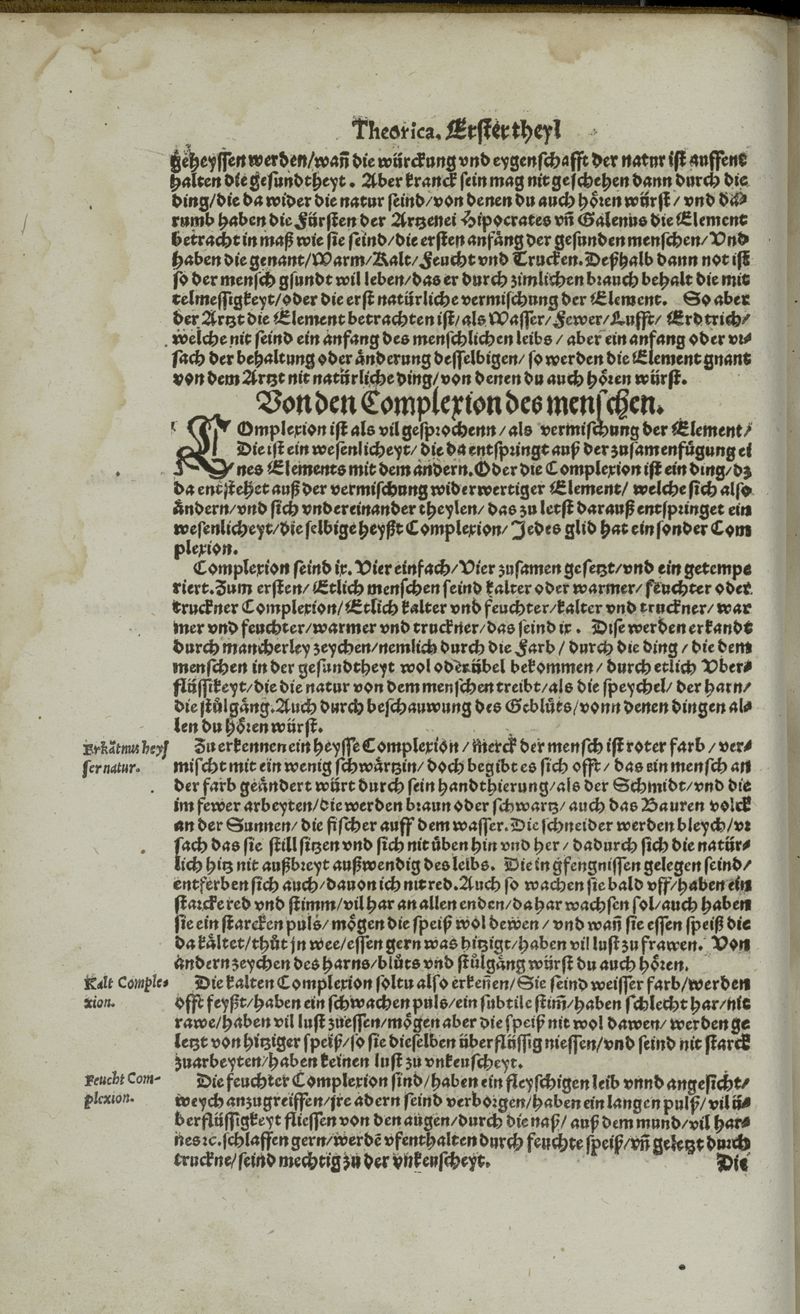 Theorica. Erster theyl
geheyssen werden/wañ die würckung vnd eygenschafft der natur ist auffent
halten die gesundtheyt. Aber kranck sein mag nit geschehen dann durch die
ding/die da wider die natur seind/von denen du auch hören würst/ vnd da-
rumb haben die Fürsten der Artzenei Hipocrates vñ Galenus die Element
betracht in maß wie sie seind/die ersten anfäng der gesunden menschen/Vnd
haben die genant/Warm/Kalt/Feucht vnd Trucken. Deßhalb dann not ist
so der mensch gsundt wil leben/das er durch zimlichen brauch behalt die mit
telmessigkeyt/oder die erst natürliche vermischung der Element. So aber
der Artzt die Element betrachten ist/als Wasser/Fewer/Lufft/ Erdtrich/
welche nit seind ein anfang des menschlichen leibs/ aber ein anfang oder vr-
sach der behaltung oder änderung desselbigen/ so werden die Element gnant
von dem Artzt nit natürliche ding/von denen du auch hören würst.
Von den Complexion des menschen.
COmplexion ist als vil gesprochenn/als vermischung der Element/
Die ist ein wesenlicheyt/ die da entspringt auß der zusamenfügung ei
nes Elements mit dem andern. Oder die Complexion ist ein ding/dz
da entstehet auß der vermischung widerwertiger Element/ welche sich also
ändern/vnd sich vndereinander theylen/ das zu letst darauß entspringet ein
wesenlicheyt/die selbige heyßt Complexion/Jedes glid hat ein sonder Com
plexion.
Complexion seind ix. Vier einfach/Vier zusamen gesetzt/vnd ein getempe
riert. Zum ersten/ Etlich menschen seind kalter oder warmer/ feuchter oder
truckner Complexion/Etlich kalter vnd feuchter/kalter vnd truckner/ war
mer vnd feuchter/warmer vnd truckner/das seind ix. Dise werden erkandt
durch mancherley zeychen/nemlich durch die Farb/ durch die ding/ die dem
menschen in der gesundtheyt wol oder übel bekommen/ durch etlich Vber-
flüssikeyt/die die natur von dem menschen treibt/als die speychel/ der harn/
die stülgäng. Auch durch beschauwung des Geblüts/vonn denen dingen al-
len du hören würst.
Erkätnus heys
ser natur.
Zu erkennen ein heysse Complexion/Merck der mensch ist roter farb/ver-
mischt mit ein wenig schwärtzin/doch begibt es sich offt/ das ein mensch an
der farb geändert würt durch sein handthierung/als der Schmidt/vnd die
im fewer arbeyten/die werden braun oder schwartz/auch das Bauren volck
an der Sunnen/die fischer auff dem wasser. Die schneider werden bleych/vr
sach das sie still sitzen vnd sich nit üben hin vnd her/ dadurch sich die natür-
lich hitz nit außbreyt außwendig des leibs. Die in gfengnissen gelegen seind/
entferben sich auch/dauon ich nit red. Auch so wachen sie bald vff/haben ein
starcke red vnd stimm/vil har an allen enden/da har wachsen sol/auch haben
sie ein starcken puls/mögen die speiß wol dewen/ vnd wañ sie essen speiß die
da kältet/thůt jn wee/essen gern was hitzigt/haben vil lust zu frawen. Von
ändern zeychen des harns/blůts vnd stůlgäng würst du auch hören.
Kalt Comple-
xion.
Die kalten Complexion soltu also erkeñen/Sie seind weisser farb/werden
offt feyßt/haben ein schwachen puls/ein subtile stim̃/haben schlecht har/nit
rawe/haben vil lust zuessen/mögen aber die speiß nit wol dawen/ werden ge
letzt von hitziger speiß/so sie dieselben überflüssig niessen/vnd seind nit starck
zuarbeyten/haben keinen lust zu vnkeuscheyt.
Feucht Com-
plexion.
Die feuchter Complexion sind/haben ein fleyschigen leib vnnd angesicht/
weych anzugreiffen/jre adern seind verborgen/haben ein langen pulß/vil ü-
berflüssigkeyt fliessen von den augen/durch die naß/ auß dem mund/vil har-
nes ꝛc. schlaffen gern/werdẽ vfenthalten durch feuchte speiß/vñ geletzt durch
truckne/seind mechtig zu der vnkeuscheyt.
Die